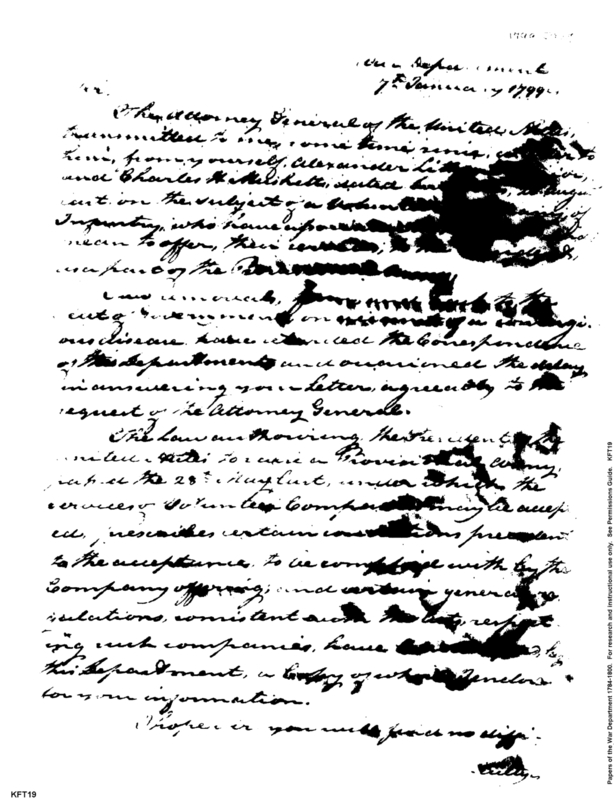 War Department
7th January 1799.
Sir,
The Attorney General of the United States,
transmitted to me, some time since, to
him, from yourself, Alexander
and Charles dated
last. on the subject of a Volunteer of
Infantry, who have
mean to offer, their services, to the
as a part of the Provisional Army,
Two removals, from and back to the
seat of Government on account of a contagi-
ous disease have retarded the Correspondence
of this Department and occasioned the delay
in answering your Letter, agreeably to the
request of the Attorney General.
The Law authorising the President of the
United States to raise a Provisional Army,
passed the 28th May last, under which the
services of Volunteer Companies may be accep-
ed, prescribes certain conditions precedent
to the acceptance, to be complied with by the
Company offering; and certain general re-
gulations, consistent with the Acts respect-
ing such companies, have by
this Department, a Copy of which I enclose
for your information.
I hope Sir you will find no diffi-
culty
KFT19
Papers of the War Department 1784-1800. For research and instructional use only. See Permissions Guide. KFT19